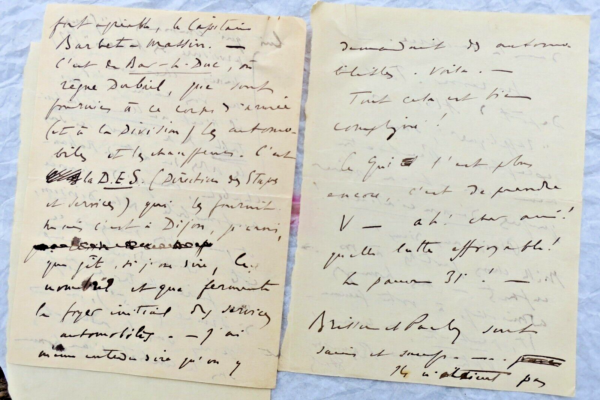 fort agréable, le Capitaine
Barbet-Massin. —
C'est de Bar-le-Duc, où
règne Dubail, que sont
fournies à ce corps d'armée
(et à la Division) les automo-
biles et les chauffeurs. C'est
la D.E.S. (Direction des Etapes
et Services) qui les fournit
mais c'est à Dijon, je crois,
que gît, si j'ose dire, le
nombril et que fermente
le foyer initial des services
automobiles. — J'ai
même entendu dire qu'on y
demandait des automo-
bilistes. Voilà. —
Tout cela est bien
compliqué!
Ce qui l'est plus
encore, c'est de prendre
V — ah! cher ami!
quelle lutte effroyable!
Le pauvre 31e! —
Brisson et Pauly sont
sains et saufs. —
Ils n'étaient pas